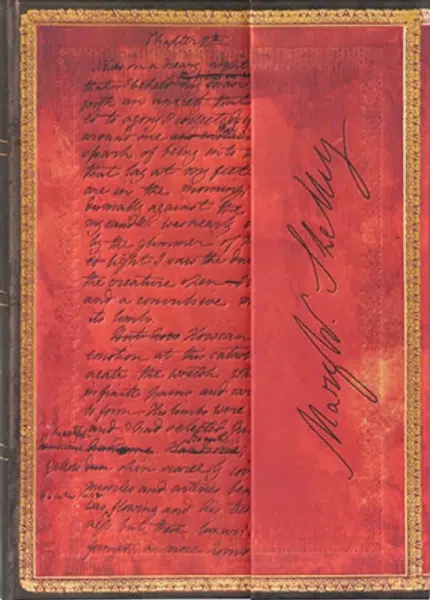 Chapter 7
It was on a dreary night
that I beheld my man
with an anxiety that
ed to agony I collected
around me
spark of being into
that lay at my feet
one in the morning,
dismally against the
my candle was nearly
by the glimmer of
light I saw the du
the creature open
and a convulsive m
its limbs.
But how How can
emotion at this catas
reate the wretch
infinite pains and car
to form. His limbs were
and I had selected
handsome Handsome,
skin
muscles and arteries bea
flowing and his
ness but these luxuri
formed a more horri
Mary W. Shelley